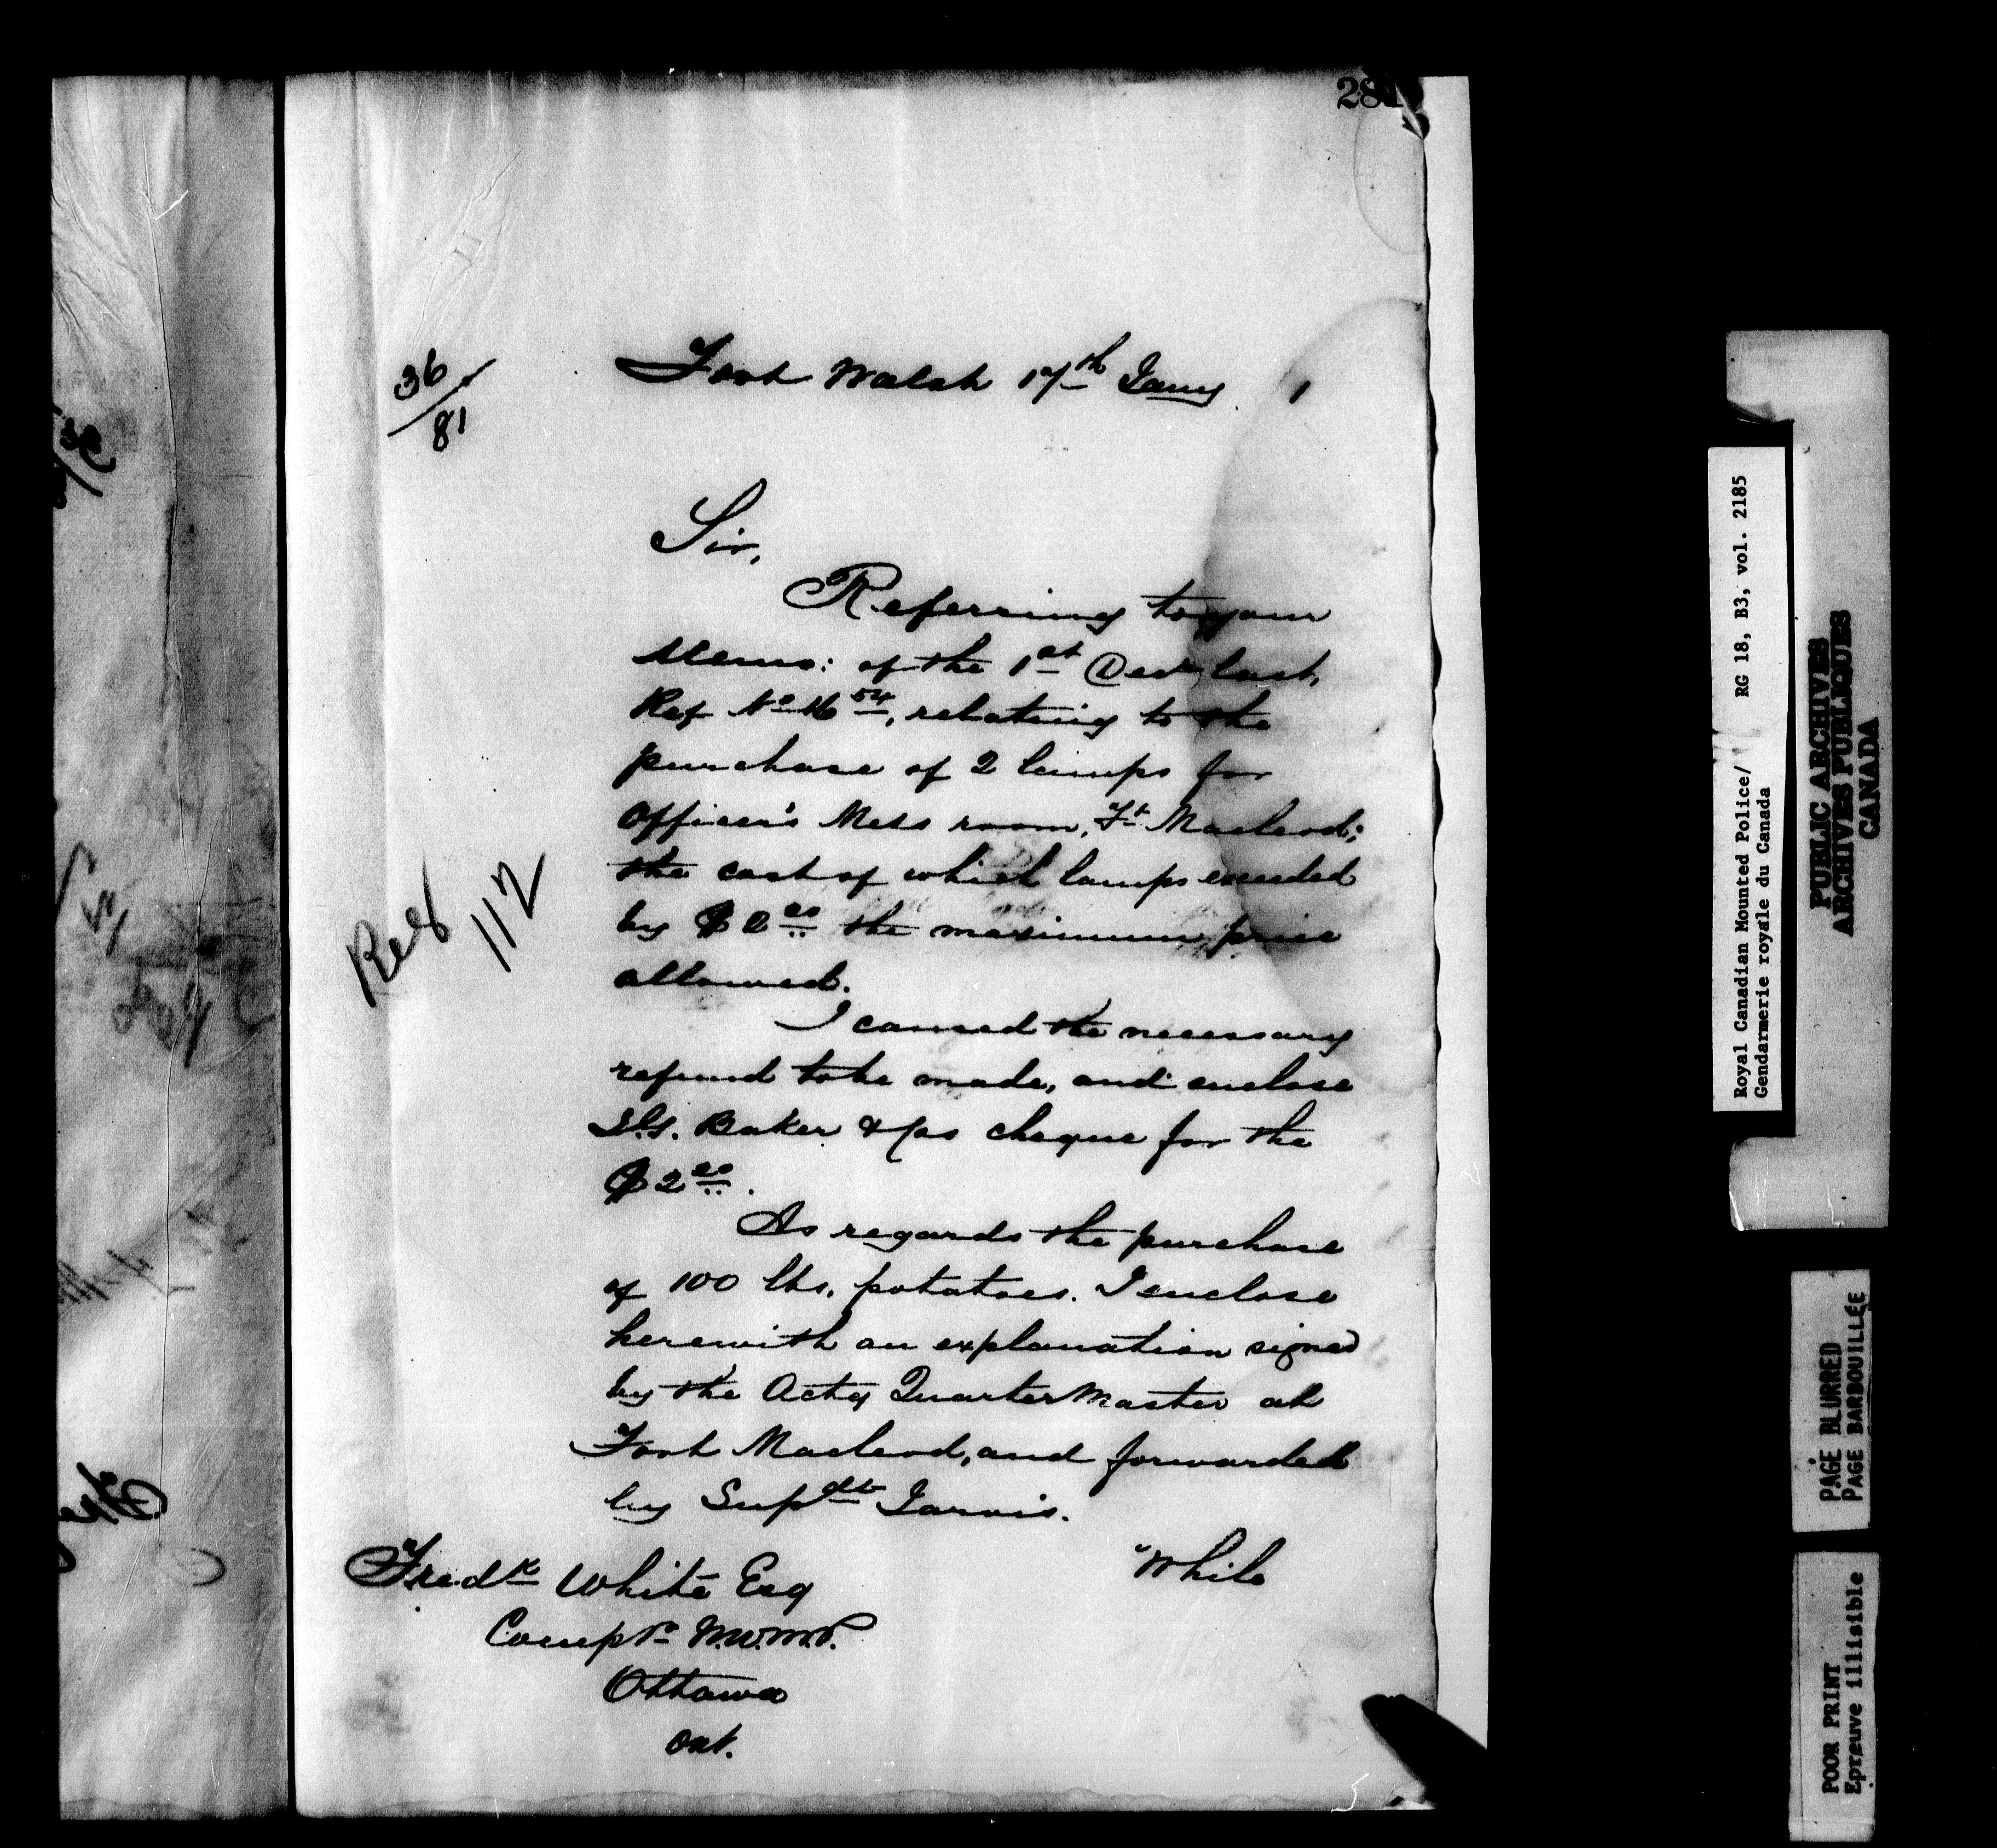 281
36/81
Fort Walsh 17th Jany 1
Sir,
Referring to your
Memo: of the 1st Decr last,
Ref No 16 54, relating to the
purchase of 2 lamps for
Officer's Mess room, Ft Macleod;
the cost of which lamps exceeded
by $2 00 the maximum price
allowed.
I caused the necessary
refund to be made, and enclose
I.G. Baker & Cos cheque for the
$2 00.
As regards the purchase
of 100 lbs. potatoes. I enclose
herewith an explanation signed
by the Actg Quarter Master at
Fort Macleod, and forwarded
by Supdt Jarvis.
"While
Fredk White Esq
Comptr N.W.M.P.
Ottawa
Ont.
Reg
112
Royal Canadian Mounted Police/ RG 18, B3, vol. 2185
Gendarmerie royale du Canada
PUBLIC ARCHIVES
ARCHIVES PUBLIQUES
CANADA
PAGE BLURRED
PAGE BARBOUILLÉE
POOR PRINT
Epreuve illisible